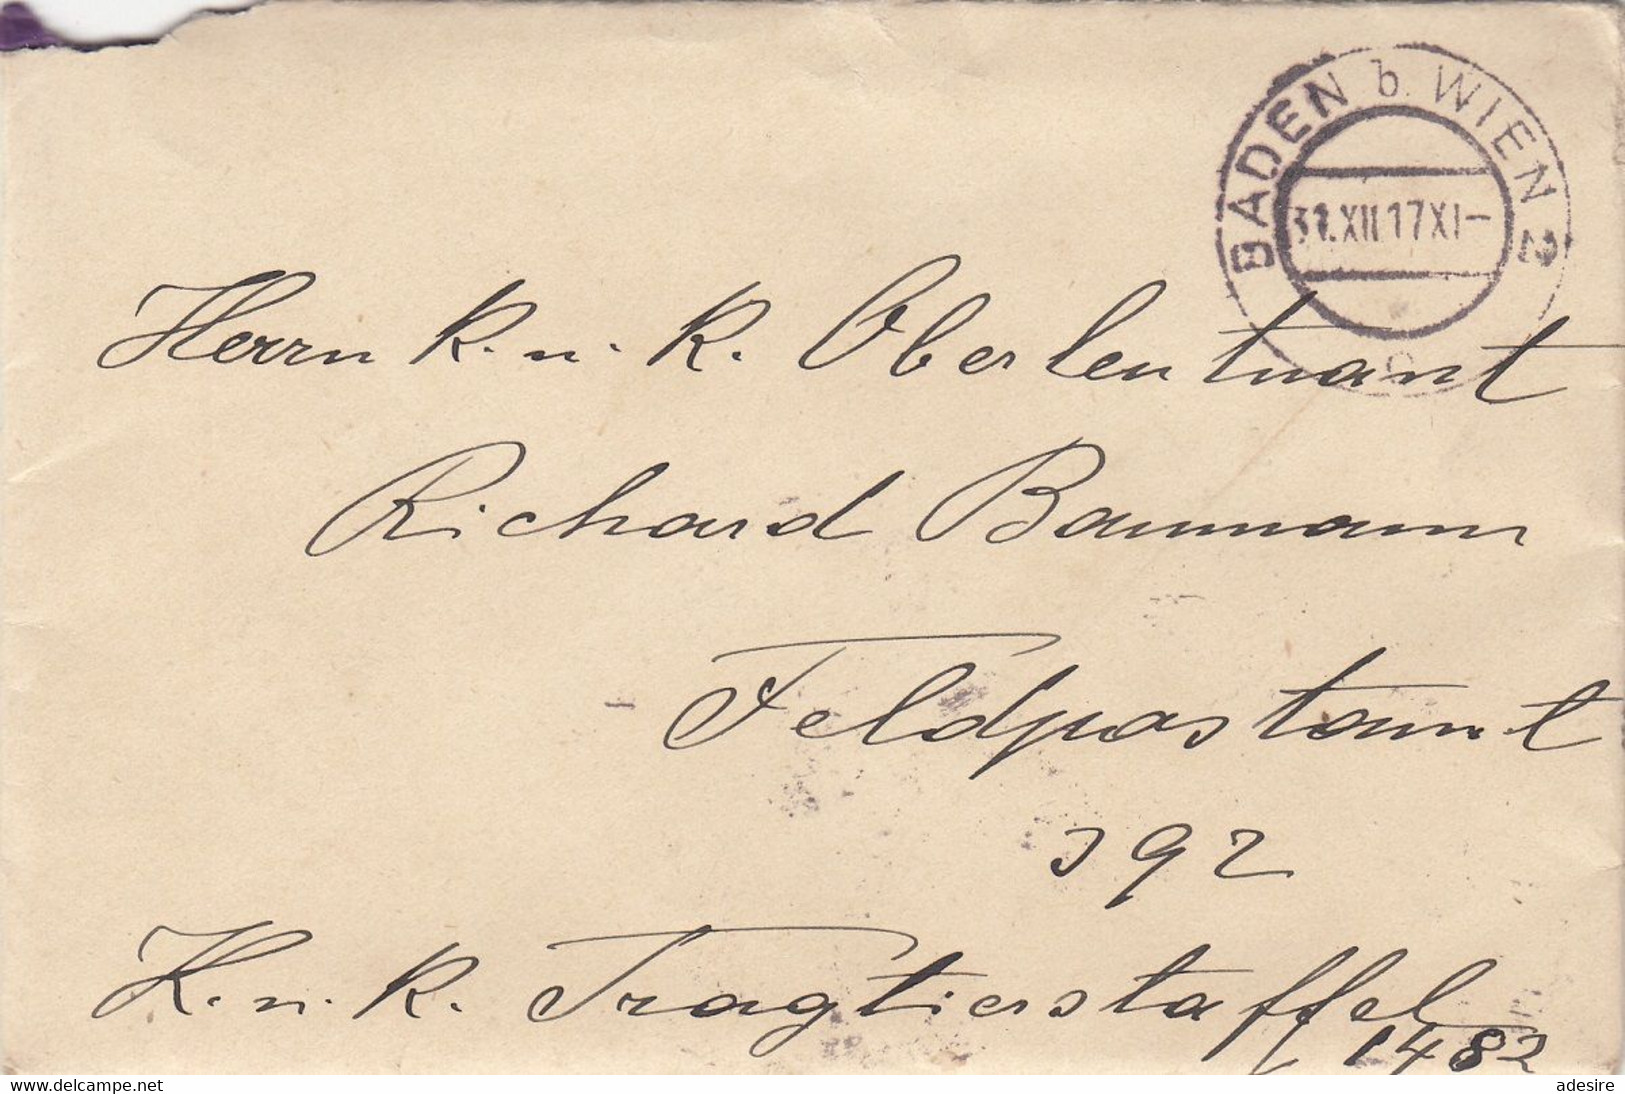 BADEN b. WIEN 2
31.XII.17XI-
c
Herrn k. u. k. Oberleutnant
Richard Baumann
Feldpostamt
392
K. u. k. Tragtierstaffel
1482
www.delcampe.net
adesire